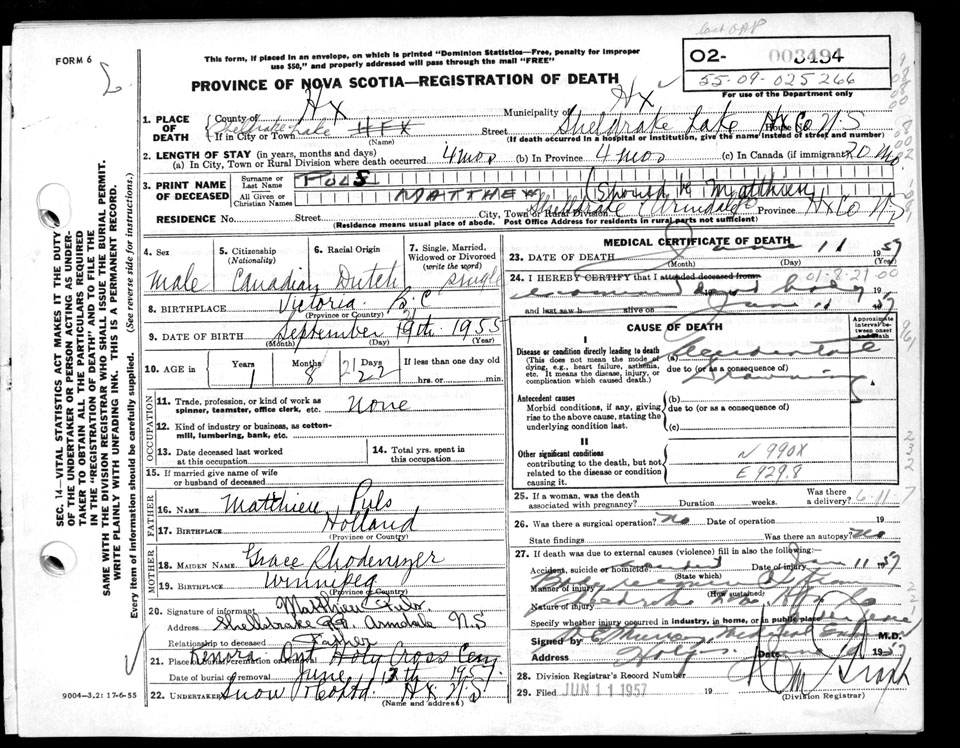 FORM 6
This form, if placed in an envelope, on which is printed "Dominion Statistics—Free, penalty for improper
use $50," and properly addressed will pass through the mail "FREE"
PROVINCE OF NOVA SCOTIA—REGISTRATION OF DEATH
02- 003494
55-09-025266
For use of the Department only
SEC. 14—VITAL STATISTICS ACT MAKES IT THE DUTY
OF THE UNDERTAKER OR PERSON ACTING AS UNDER-
TAKER TO OBTAIN ALL THE PARTICULARS REQUIRED
IN THE "REGISTRATION OF DEATH" AND TO FILE THE
SAME WITH THE DIVISION REGISTRAR WHO SHALL ISSUE THE BURIAL PERMIT.
WRITE PLAINLY WITH UNFADING INK. THIS IS A PERMANENT RECORD.
Every item of information should be carefully supplied. (See reverse side for instructions.)
1. PLACE OF DEATH County of Hx Municipality of Hx
If in City or Town Sheldrake Lake HFX (Name) Street Sheldrake Lake Hx Co N.S House No.
(If death occurred in a hospital or institution, give the name instead of street and number)
2. LENGTH OF STAY (in years, months and days)
(a) In City, Town or Rural Division where death occurred 4 mos (b) In Province 4 mos (c) In Canada (if immigrant) 20 mo
3. PRINT NAME OF DECEASED Surname or Last Name PULS
All Given or Christian Names MATTHEW Matthieu
RESIDENCE No. Street City, Town or Rural Division Sheldrake Province Hx Co N.S
(Residence means usual place of abode. Post Office Address for residents in rural parts not sufficient)
4. Sex Male
5. Citizenship (Nationality) Canadian
6. Racial Origin Dutch
7. Single, Married, Widowed or Divorced (write the word) single
8. BIRTHPLACE Victoria B.C
(Province or Country)
9. DATE OF BIRTH September 19th 1955
(Month) (Day) (Year)
10. AGE in Years 1 Months 8 Days 22 If less than one day old hrs. or min.
OCCUPATION
11. Trade, profession, or kind of work as spinner, teamster, office clerk, etc. None
12. Kind of industry or business, as cotton-mill, lumbering, bank, etc.
13. Date deceased last worked at this occupation
14. Total yrs. spent in this occupation
15. If married give name of wife or husband of deceased
FATHER
16. NAME Matthieu Puls
17. BIRTHPLACE Holland
(Province or Country)
MOTHER
18. MAIDEN NAME Grace Rhodenizer
19. BIRTHPLACE Winnipeg
(Province or Country)
20. Signature of informant Matthieu Puls
Address Armdale N.S
Relationship to deceased Father
21. Place of burial, cremation or removal Kenora Ont Holy Cross Cem
Date of burial or removal June 1957
22. UNDERTAKER Snow Hx N.S
(Name and address)
9004-3.2: 17-6-55
MEDICAL CERTIFICATE OF DEATH
23. DATE OF DEATH June 11 1957
(Month) (Day) (Year)
24. I HEREBY CERTIFY that I attended deceased from: 01-8-21-00
and last saw h alive on June 11 1957
CAUSE OF DEATH
Approximate interval between onset and death
I
Disease or condition directly leading to death
(This does not mean the mode of dying, e.g., heart failure, asthenia, etc. It means the disease, injury, or complication which caused death.)
(a) Accidental
due to (or as a consequence of) Drowning
Antecedent causes
Morbid conditions, if any, giving rise to the above cause, stating the underlying condition last.
(b)
due to (or as a consequence of)
(c)
II
Other significant conditions
contributing to the death, but not related to the disease or condition causing it.
N 990X
E 929.8
25. If a woman, was the death associated with pregnancy? Duration weeks. Was there a delivery?
26. Was there a surgical operation? no Date of operation 19
State findings Was there an autopsy? No
27. If death was due to external causes (violence) fill in also the following:—
Accident, suicide or homicide Accident (State which) Date of injury June 11 1957
Manner of injury
(How sustained)
Nature of injury
Specify whether injury occurred in industry, in home, or in public place
Signed by Medical M.D.
Address Date June 1957
28. Division Registrar's Record Number
29. Filed JUN 11 1957 19
(Division Registrar)